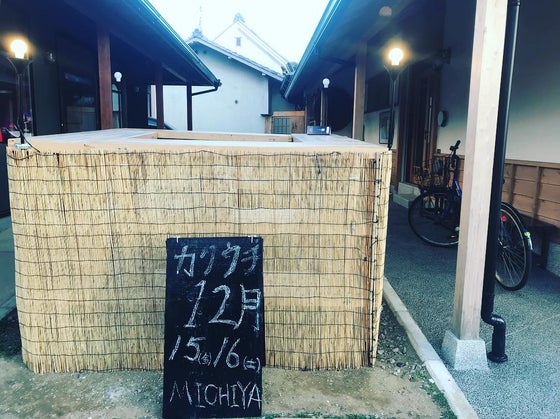 カクウチ
12月
15(金)16(土)
MICHIYA